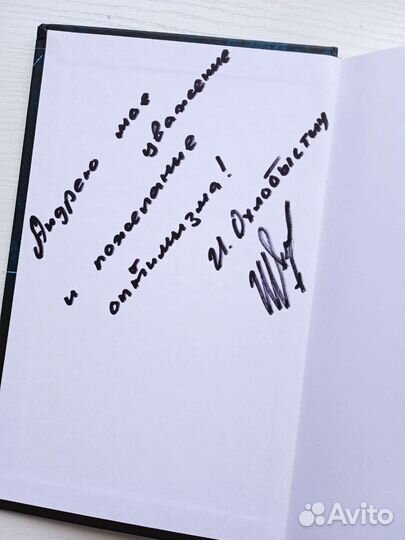 Андрею мое
уважение
и пожелание
оптимизма!
И. Охлобыстин
Avito